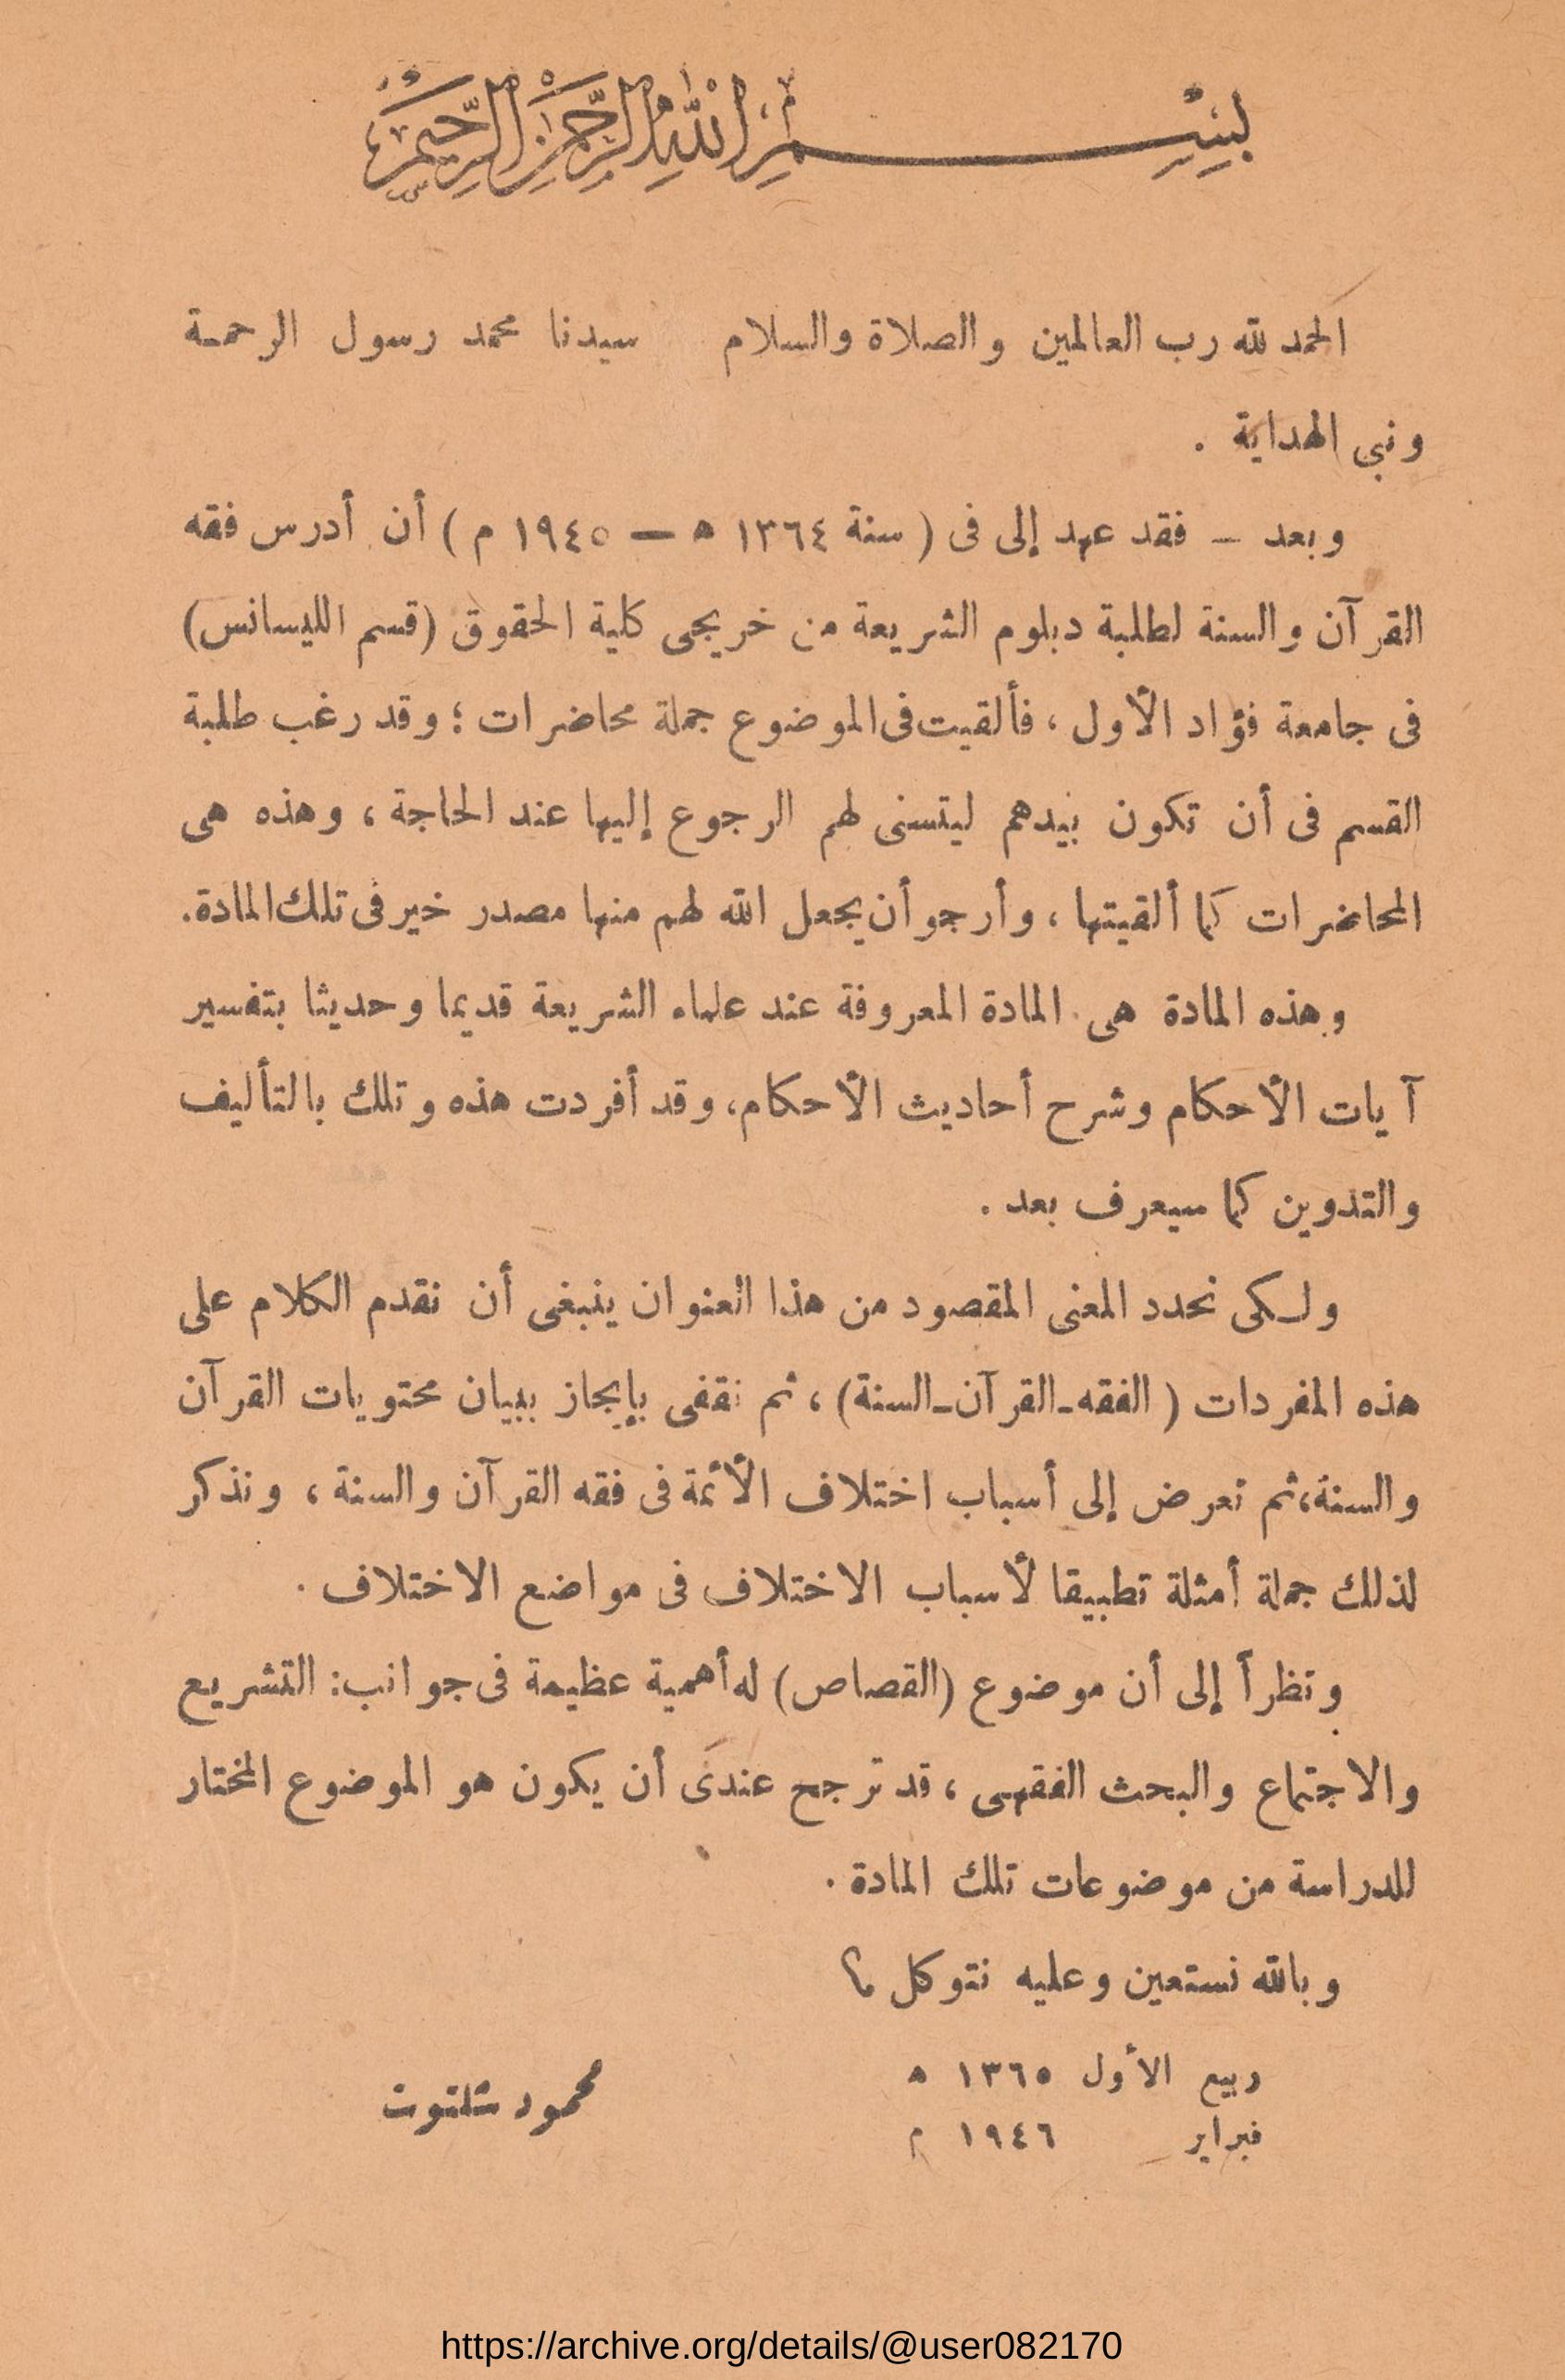 بِسْمِ اللهِ الرَّحْمَنِ الرَّحِيمِ
الحمد لله رب العالمين والصلاة والسلام سيدنا محمد رسول الرحمة
ونبي الهداية .
وبعد – فقد عهد إلى فى ( سنة ١٣٦٤ ه — ١٩٤٥ م ) أن أدرس فقه
القرآن والسنة لطلبة دبلوم الشريعة من خريجى كلية الحقوق (قسم الليسانس)
فى جامعة فؤاد الأول ، فألقيت فى الموضوع جملة محاضرات ؛ وقد رغب طلبة
القسم فى أن تكون بيدهم ليتسنى لهم الرجوع إليها عند الحاجة ، وهذه هى
المحاضرات كما ألقيتها ، وأرجو أن يجعل الله لهم منها مصدر خير فى تلك المادة.
وهذه المادة هى المادة المعروفة عند علماء الشريعة قديما وحديثا بتفسير
آيات الأحكام وشرح أحاديث الأحكام، وقد أفردت هذه وتلك بالتأليف
والتدوين كما سيعرف بعد .
ولكى نحدد المعنى المقصود من هذا العنوان ينبغى أن نقدم الكلام على
هذه المفردات ( الفقه-القرآن-السنة) ، ثم نقفى بإيجاز ببيان محتويات القرآن
والسنة، ثم نعرض إلى أسباب اختلاف الأئمة فى فقه القرآن والسنة ، ونذكر
لذلك جملة أمثلة تطبيقا لأسباب الاختلاف فى مواضع الاختلاف .
ونظراً إلى أن موضوع (القصاص) له أهمية عظيمة فى جوانب: التشريع
والاجتماع والبحث الفقهى ، قد ترجح عندى أن يكون هو الموضوع المختار
للدراسة من موضوعات تلك المادة .
وبالله نستعين وعليه نتوكل ؟
ربيع الأول ١٣٦٥ ه
فبراير ١٩٤٦ م
محمود شلتوت
https://archive.org/details/@user082170